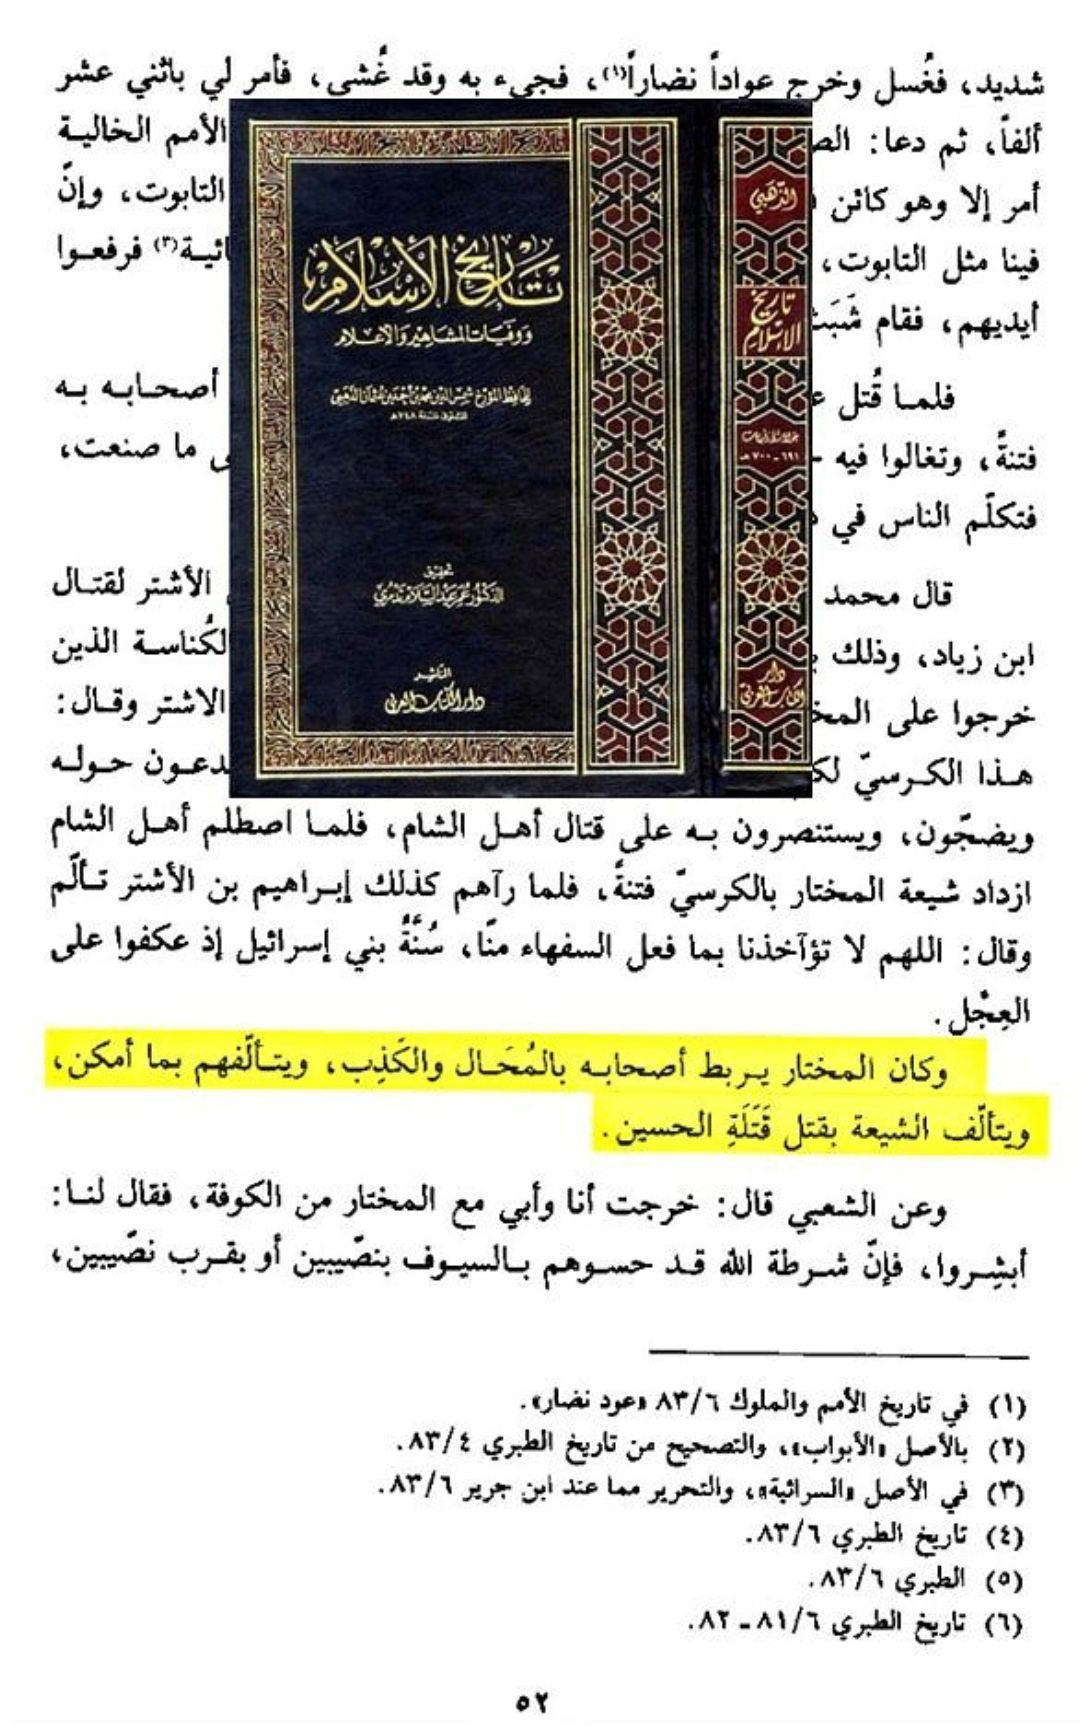 شديد، فغُسل وخرج عواداً نضاراً(١)، فجيء به وقد غُشى، فأمر لي باثني عشر
ألفاً، ثم دعا: الأمم الخالية
أمر إلا وهو كائن التابوت، وإنّ
فينا مثل التابوت، (٣) فرفعوا
أيديهم، فقام شَبَث
فلما قُتل أصحابه به
فتنةً، وتغالوا فيه ما صنعت،
فتكلّم الناس في
قال محمد الأشتر لقتال
ابن زياد، وذلك الكُناسة الذين
خرجوا على الاشتر وقال:
هذا الكرسيّ يدعون حوله
ويضجّون، ويستنصرون به على قتال أهل الشام، فلما اصطلم أهل الشام
ازداد شيعة المختار بالكرسيّ فتنةً، فلما رآهم كذلك إبراهيم بن الأشتر تألّم
وقال: اللهم لا تؤآخذنا بما فعل السفهاء منّا، سُنَّةُ بني إسرائيل إذ عكفوا على
العِجْل.
وكان المختار يربط أصحابه بالمُحَال والكَذِب، ويتألّفهم بما أمكن،
ويتألّف الشيعة بقتل قَتَلَةِ الحسين.
وعن الشعبي قال: خرجت أنا وأبي مع المختار من الكوفة، فقال لنا:
أبشِروا، فإنّ شرطة الله قد حسوهم بالسيوف بنصّيبين أو بقرب نصّيبين،
(١) في تاريخ الأمم والملوك ٨٣/٦ «عود نضار».
(٢) بالأصل «الأبواب»، والتصحيح من تاريخ الطبري ٨٣/٤.
(٣) في الأصل «السرائبة»، والتحرير مما عند ابن جرير ٨٣/٦.
(٤) تاريخ الطبري ٨٣/٦.
(٥) الطبري ٨٣/٦.
(٦) تاريخ الطبري ٨١/٦ ـ ٨٢.
٥٢
تاريخ الإسلام
ووفيات المشاهير والأعلام
للحافظ المؤرخ شمس الدين محمد بن أحمد بن عثمان الذهبي
المتوفى سنة ٧٤٨هـ
تحقيق
الدكتور عمر عبد السلام تدمري
الناشر
دار الكتاب العربي
الذهبي
تاريخ
الإسلام
٦٩١ - ٧٠٠هـ
دار
الكتاب العربي